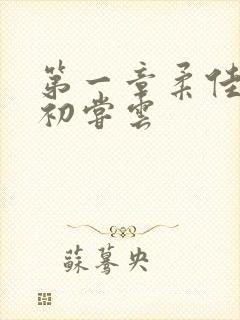 第一章柔佳
初尝雲
蘇驀央